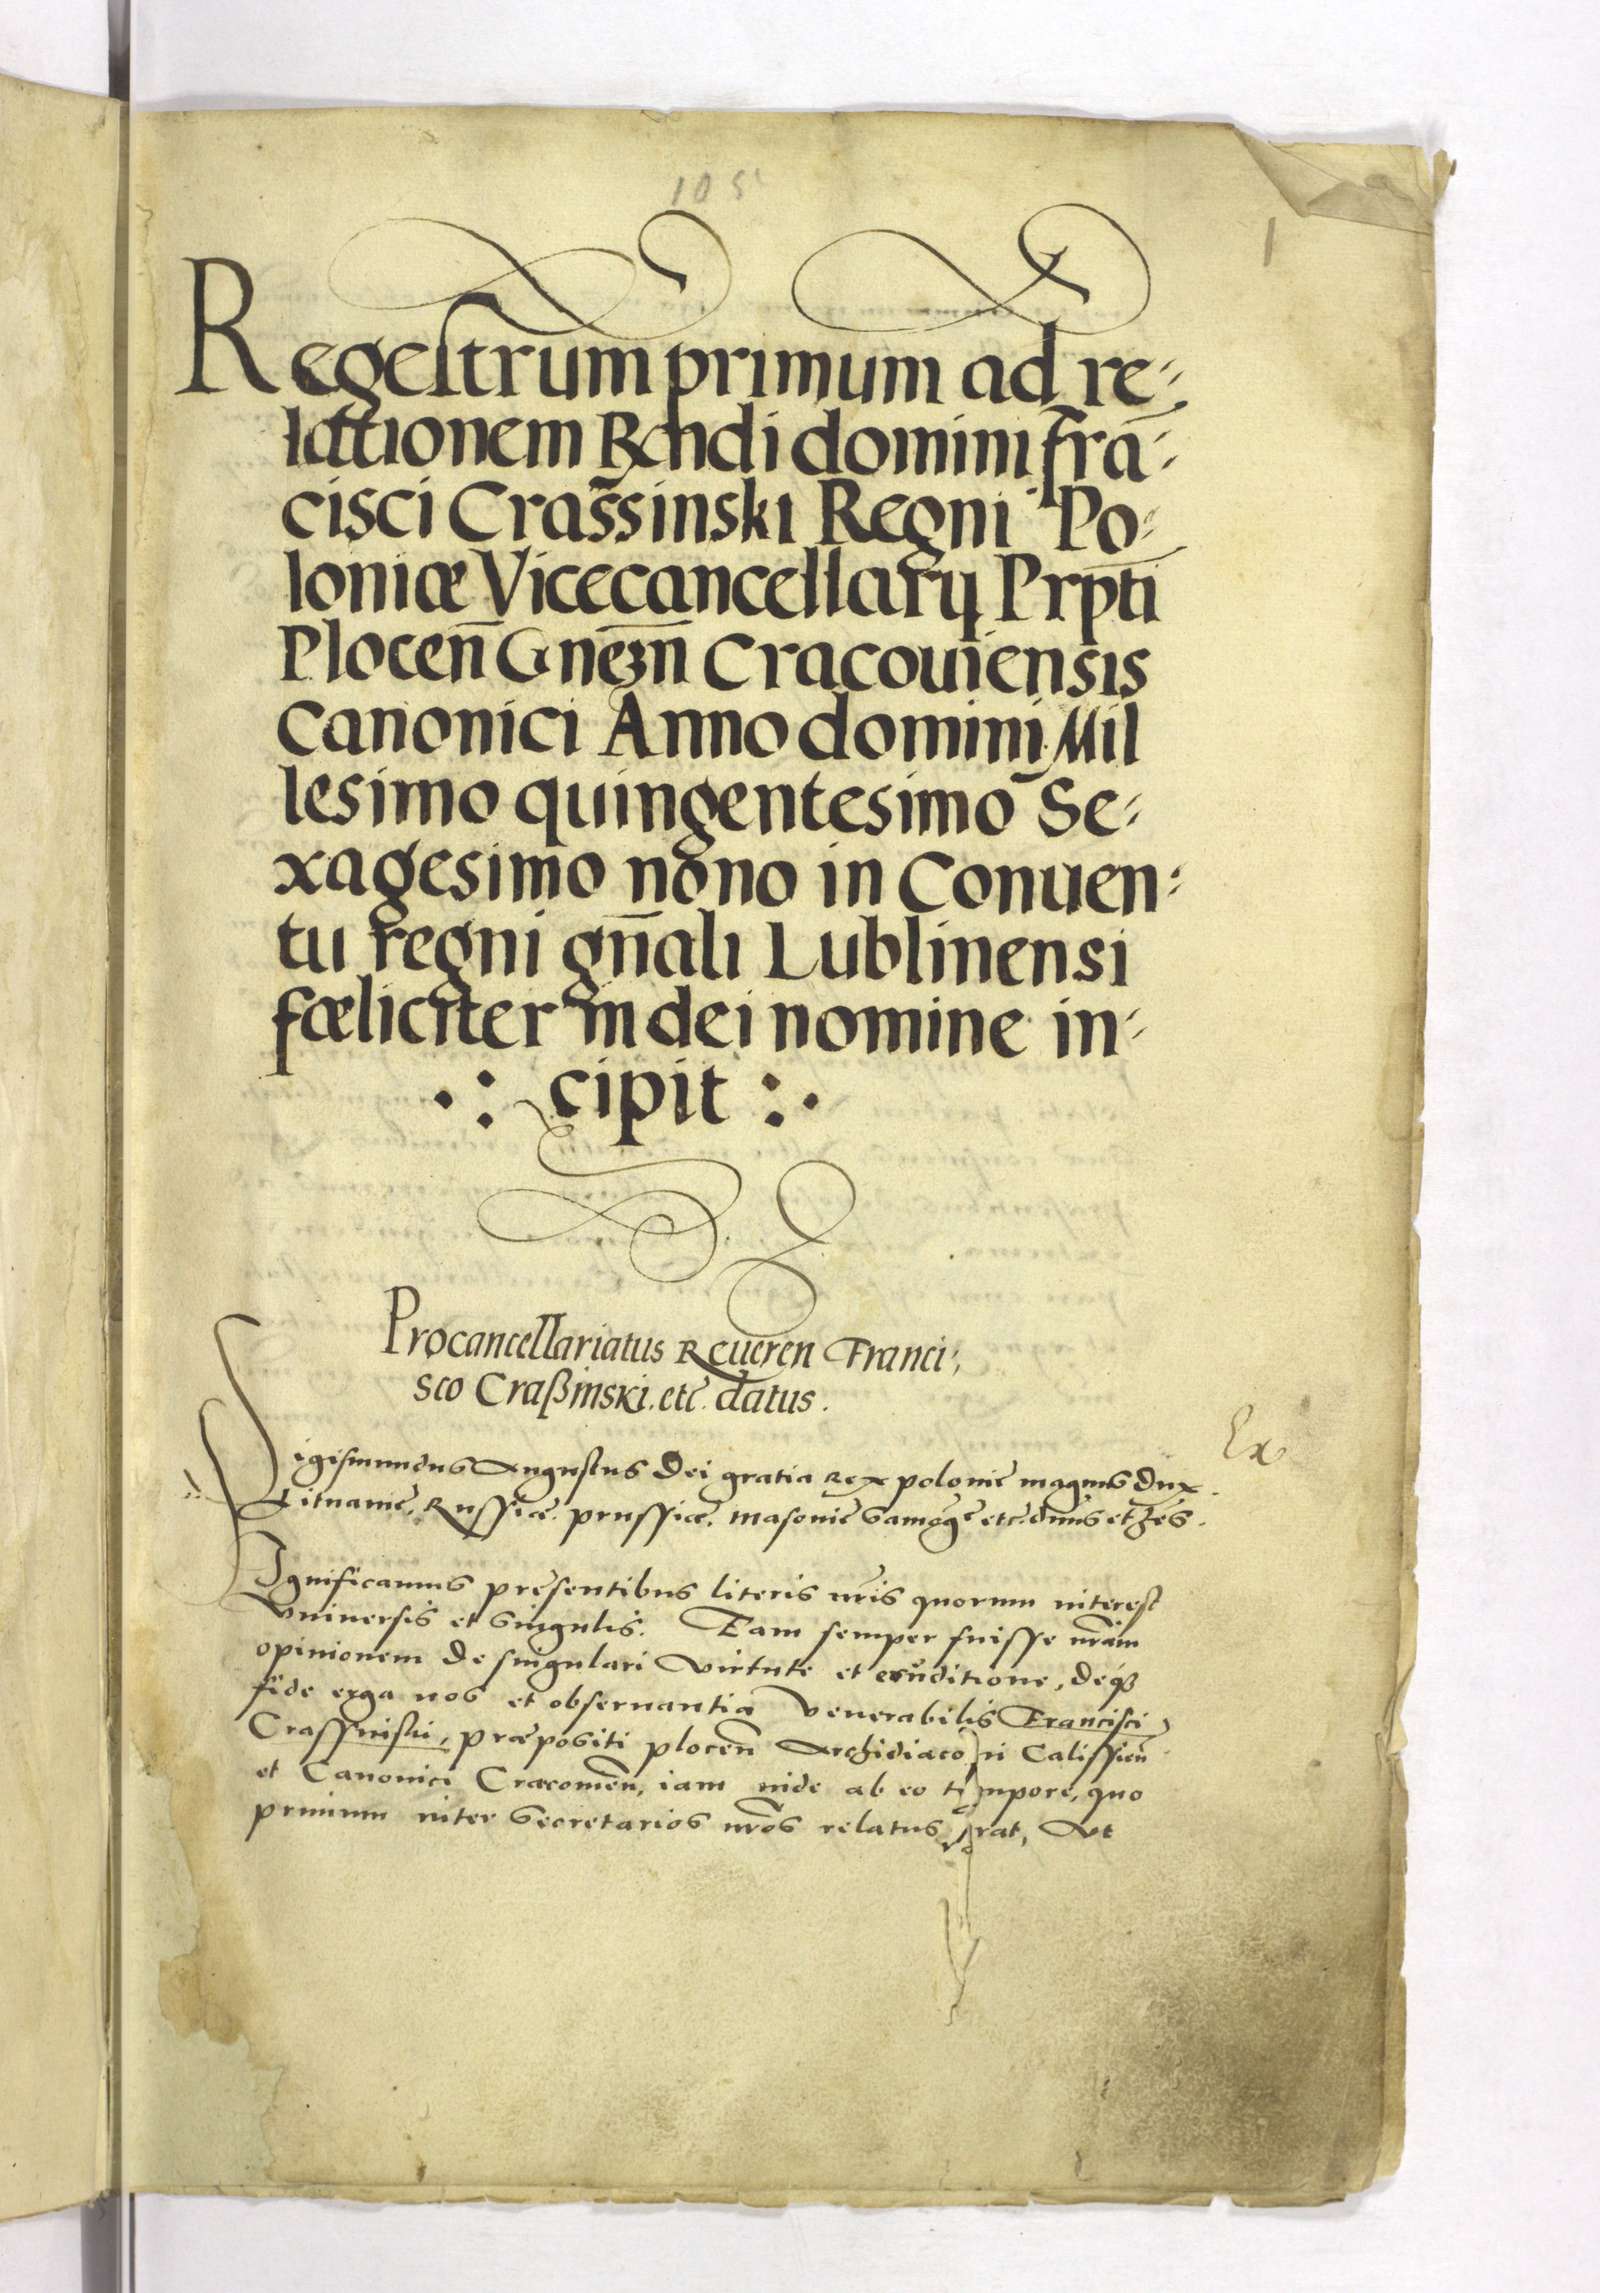 105
1
Regestrum primum ad re-
lationem Rendi domini frā-
cisci Crassinski Regni Po-
loniæ Vicecancellarij Prpti
Plocen̄ Gnezn̄ Cracouiensis
Canonici Anno domini Mil
lesimo quingentesimo Se-
xagesimo nono in Conuen-
tu regni gn̄ali Lublinensi
fœliciter in dei nomine in-
cipit
Procancellariatus Reueren Franci-
sco Craßinski. etc. datus.
Ex
Sigismundus Augustus Dei gratia Rex polonie magnus Dux
Lituanie, Russiæ, prussiæ, Masouie Samogē etc. dn̄us et hēs.
Significamus presentibus literis nr̄is quorum interest
vniuersis et singulis. Eam semper fuisse nr̄am
opinionem de singulari virtute et eruditione, deq̃
fide erga nos et obseruantia venerabilis Francisci
Crassinski, præpositi plocen̄ Archidiaconi Calissien̄
et Canonici Cracouien̄, iam inde ab eo tempore, quo
primum inter Secretarios nr̄os relatus erat, Vt